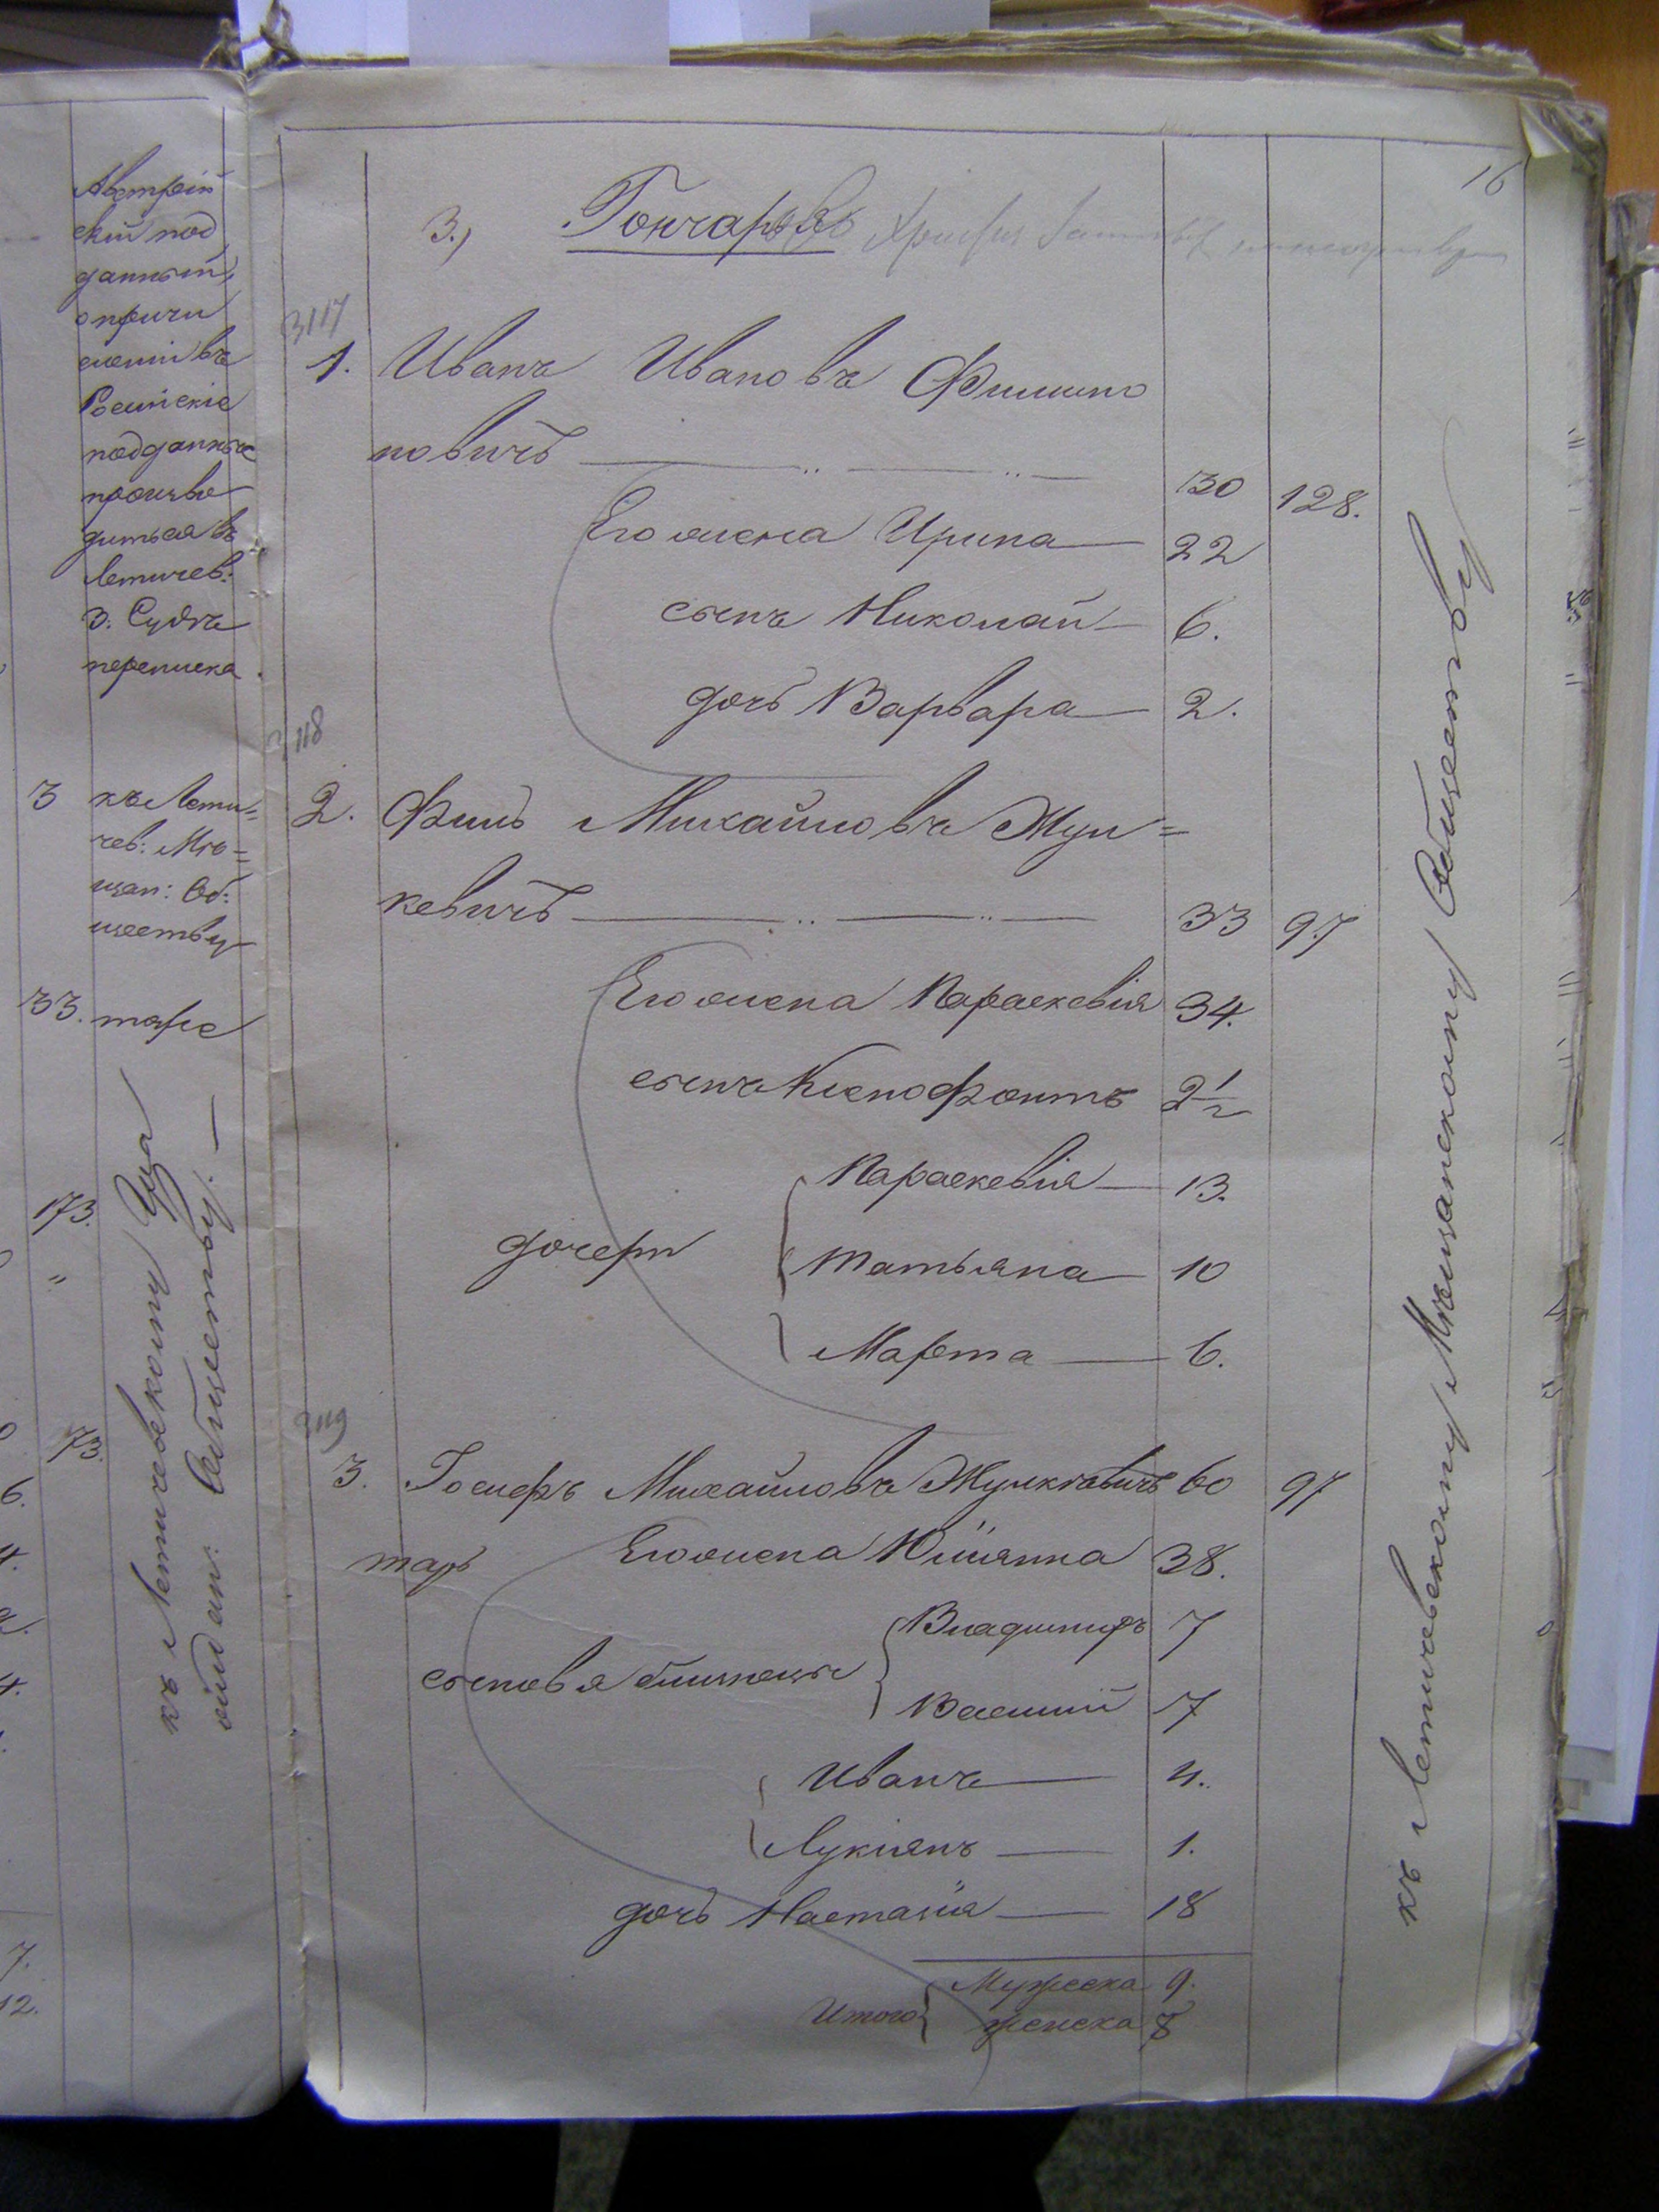 Австрій
скій под
данный,
о причи
сленіи въ
Россійскіе
подданные
произво
дится въ
Летичев:
З. Судѣ
переписка.
3 къ Лети=
чев: Мѣ=
щан: Об:
ществу
33. тоже
173.
"
73.
6.
4.
4.
7.
12.
къ Летичевскому
общан: Обществу. —
16
3.) Гончаровъ
3117
1. Иванъ Ивановъ Филипо
повичъ 130 128.
Его жена Ирина 22
сынъ Николай 6.
дочь Варвара 2.
3118
2. Филь Михайловъ Жул=
кевичъ 33 97
Его жена Параскевія 34.
сынъ Ксенофонтъ 2 1/2
Параскевія 13.
дочери Татьяна 10
Марта 6.
3119
3. Іосифъ Михайловъ Жулкевичъ 60 97
Его жена Юліянна 38.
Владимиръ 7
сыновья близнецы
Василій 7
Иванъ 4.
Лукіянъ 1.
дочь Настасія 18
Мужеска 9.
Итого женска 8
къ Летичевскому Мѣщанскому Обществу